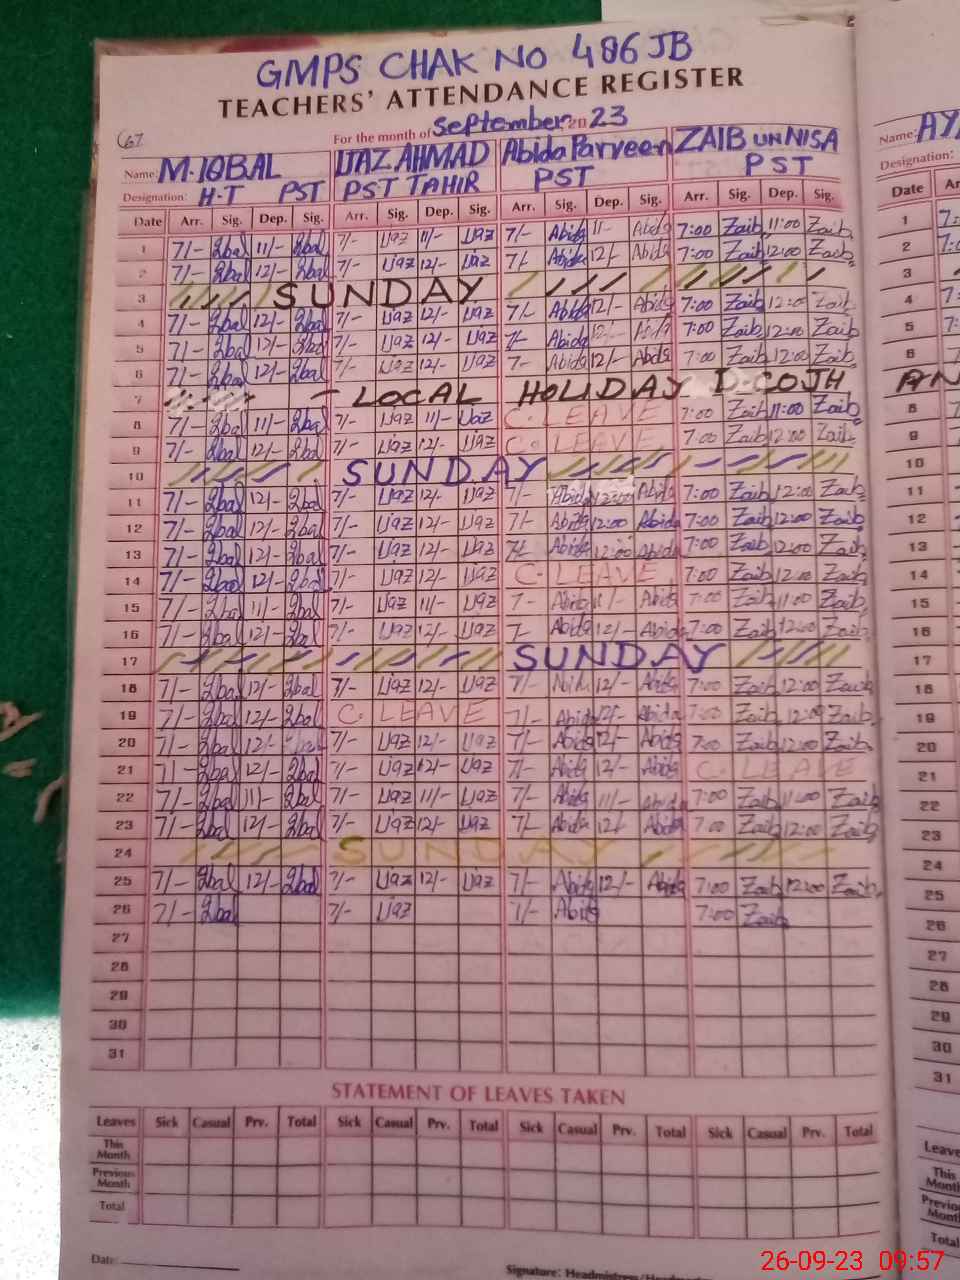 GMPS CHAK NO 486 JB
TEACHERS' ATTENDANCE REGISTER
For the month of September 20 23
Name: M. IQBAL IJAZ AHMAD Abida Parveen ZAIB UN NISA
Designation: H.T PST PST TAHIR PST PST
Name: AY
Designation:
Date Arr. Sig. Dep. Sig. Arr. Sig. Dep. Sig. Arr. Sig. Dep. Sig. Arr. Sig. Dep. Sig. Date
1 7/- Iqbal 11/- Iqbal 7/- Ijaz 11/- Ijaz 7/- Abida 11/- Abida 7:00 Zaib 11:00 Zaib 1
2 7/- Iqbal 12/- Iqbal 7/- Ijaz 12/- Ijaz 7/- Abida 12/- Abida 7:00 Zaib 12:00 Zaib 2
3 SUNDAY 3
4 7/- Iqbal 12/- Iqbal 7/- Ijaz 12/- Ijaz 7/- Abida 12/- Abida 7:00 Zaib 12:00 Zaib 4
5 7/- Iqbal 12/- Iqbal 7/- Ijaz 12/- Ijaz 7/- Abida 12/- Abida 7:00 Zaib 12:00 Zaib 5
6 7/- Iqbal 12/- Iqbal 7/- Ijaz 12/- Ijaz 7/- Abida 12/- Abida 7:00 Zaib 12:00 Zaib 6
7 LOCAL HOLIDAY
8 7/- Iqbal 11/- Iqbal 7/- Ijaz 11/- Ijaz C. LEAVE 7:00 Zaib 11:00 Zaib 8
9 7/- Iqbal 12/- Iqbal 7/- Ijaz 12/- Ijaz C. LEAVE 7:00 Zaib 12:00 Zaib 9
10 SUNDAY 10
11 7/- Iqbal 12/- Iqbal 7/- Ijaz 12/- Ijaz 7/- Abida 12:00 Abida 7:00 Zaib 12:00 Zaib 11
12 7/- Iqbal 12/- Iqbal 7/- Ijaz 12/- Ijaz 7/- Abida 12:00 Abida 7:00 Zaib 12:00 Zaib 12
13 7/- Iqbal 12/- Iqbal 7/- Ijaz 12/- Ijaz 7/- Abida 12:00 Abida 7:00 Zaib 12:00 Zaib 13
14 7/- Iqbal 12/- Iqbal 7/- Ijaz 12/- Ijaz C. LEAVE 7:00 Zaib 12:00 Zaib 14
15 7/- Iqbal 11/- Iqbal 7/- Ijaz 11/- Ijaz 7/- Abida 11/- Abida 7:00 Zaib 11:00 Zaib 15
16 7/- Iqbal 12/- Iqbal 7/- Ijaz 12/- Ijaz 7/- Abida 12/- Abida 7:00 Zaib 12:00 Zaib 16
17 SUNDAY 17
18 7/- Iqbal 12/- Iqbal 7/- Ijaz 12/- Ijaz 7/- 12/- Abida 7:00 Zaib 12:00 Zaib 18
19 7/- Iqbal 12/- Iqbal C. LEAVE 7/- Abida 12/- Abida 7:00 Zaib 12:00 Zaib 19
20 7/- Iqbal 12/- Iqbal 7/- Ijaz 12/- Ijaz 7/- Abida 12/- Abida 7:00 Zaib 12:00 Zaib 20
21 7/- Iqbal 12/- Iqbal 7/- Ijaz 12/- Ijaz 7/- Abida 12/- Abida C. LEAVE 21
22 7/- Iqbal 11/- Iqbal 7/- Ijaz 11/- Ijaz 7/- Abida 11/- Abida 7:00 Zaib 11:00 Zaib 22
23 7/- Iqbal 12/- Iqbal 7/- Ijaz 12/- Ijaz 7/- Abida 12/- Abida 7:00 Zaib 12:00 Zaib 23
24 SUNDAY 24
25 7/- Iqbal 12/- Iqbal 7/- Ijaz 12/- Ijaz 7/- Abida 12/- Abida 7:00 Zaib 12:00 Zaib 25
26 7/- Iqbal 7/- Ijaz 7/- Abida 7:00 Zaib 26
27 27
28 28
29 29
30 30
31 31
STATEMENT OF LEAVES TAKEN
Leaves Sick Casual Prv. Total Sick Casual Prv. Total Sick Casual Prv. Total Sick Casual Prv. Total
This Month
Previous Month
Total
Date:
Signature: Headmistress/
26-09-23 09:57